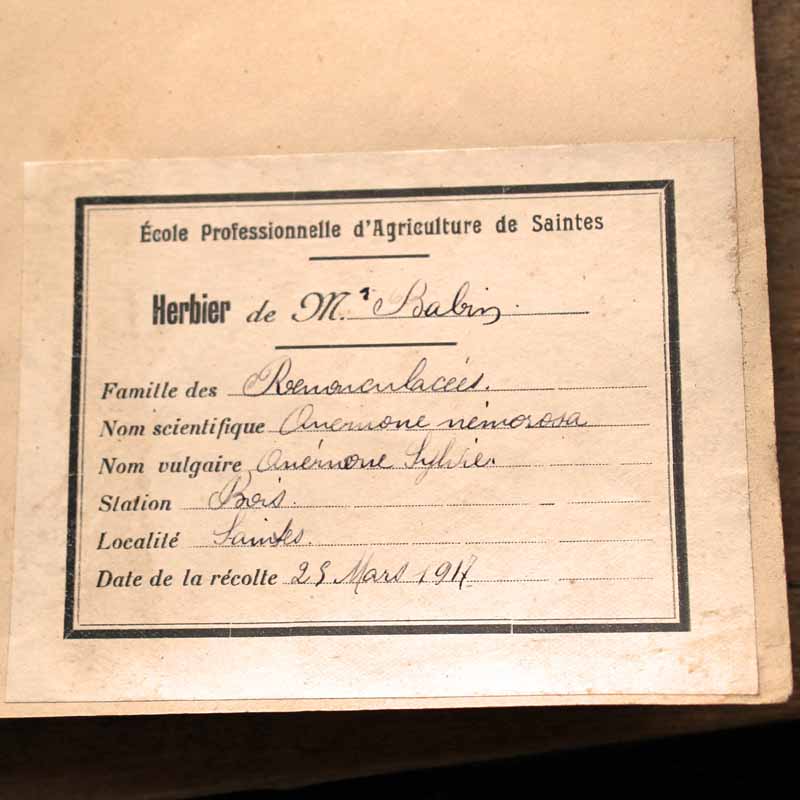 École Professionnelle d'Agriculture de Saintes
Herbier de Mr Babin.
Famille des Renonculacées.
Nom scientifique Anémone némorosa
Nom vulgaire Anémone Sylvie.
Station Bois.
Localité Saintes.
Date de la récolte 25 Mars 1917